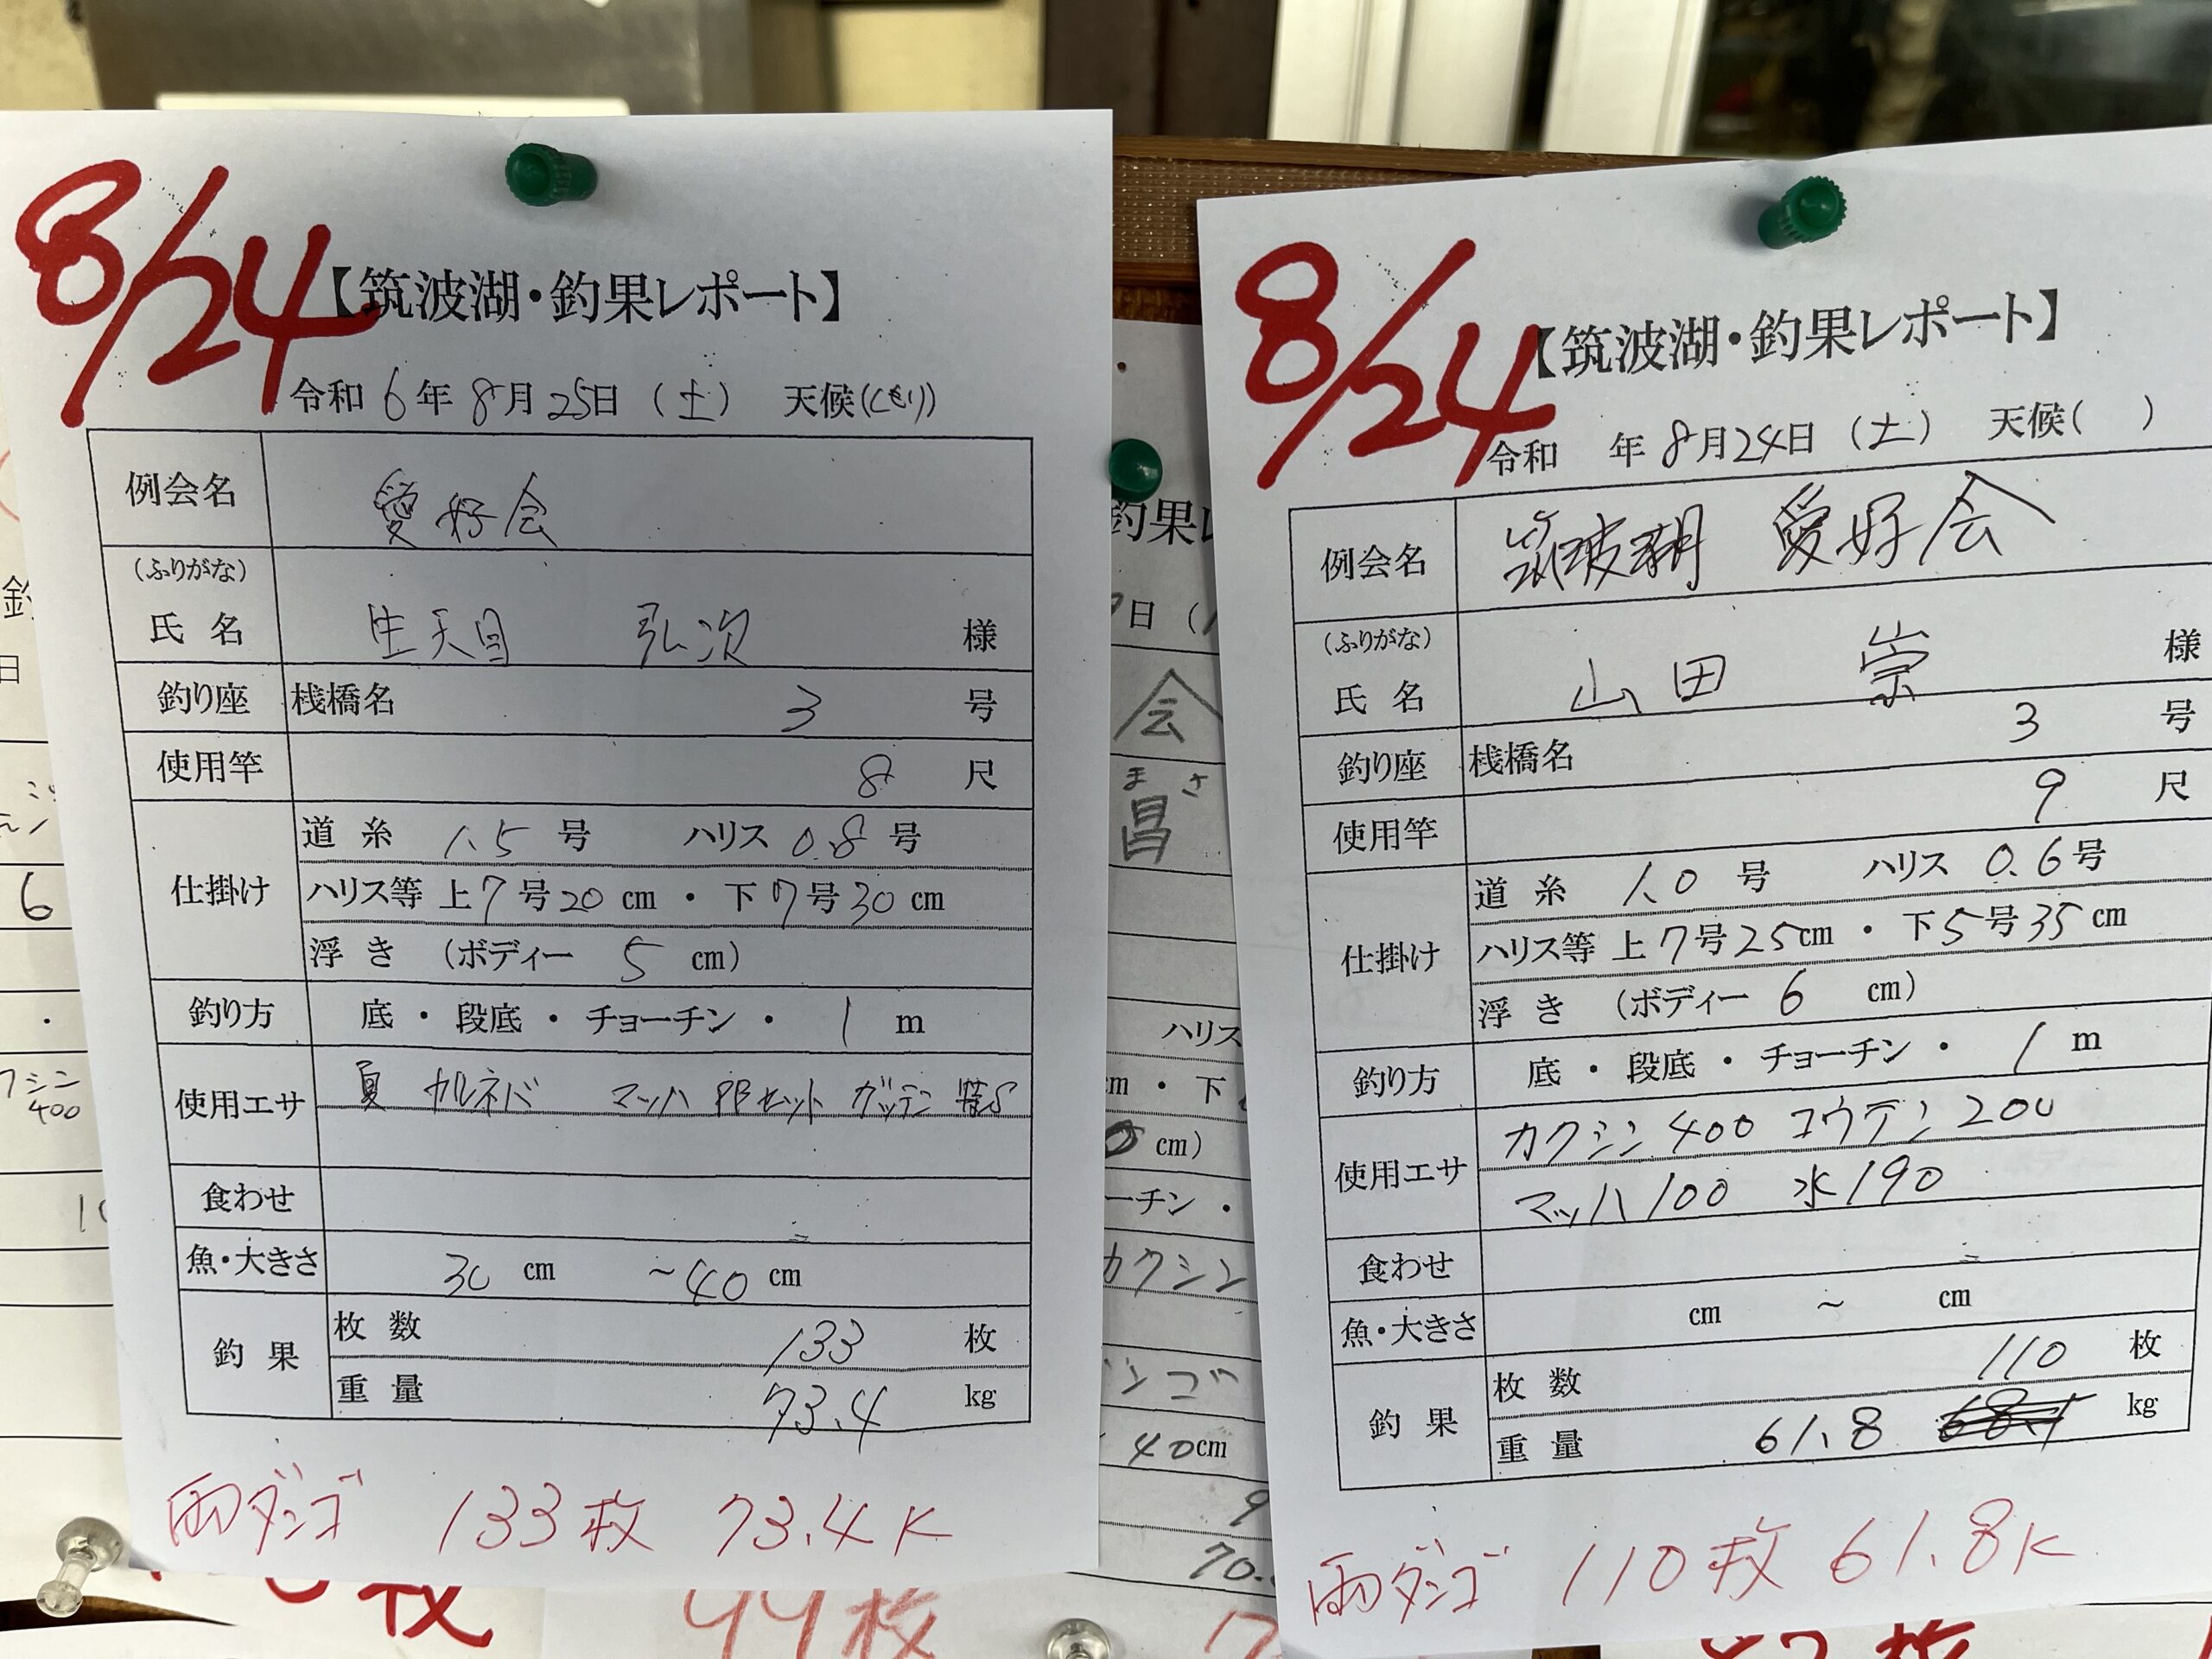 8/24
【筑波湖・釣果レポート】
令和 6 年 8 月 25 日 (土) 天候(くもり)
例会名 愛好会
(ふりがな)
氏 名 生天目 弘次 様
釣り座 桟橋名 3 号
使用竿 8 尺
仕掛け 道 糸 1.5 号 ハリス 0.8 号
ハリス等 上 7 号 20 cm ・ 下 7 号 30 cm
浮 き (ボディー 5 cm)
釣り方 底 ・ 段底 ・ チョーチン ・ 1 m
使用エサ 夏 カルネバ マッハ PBセット ガッテン
食わせ
魚・大きさ 30 cm ~40 cm
釣 果 枚 数 133 枚
重 量 73.4 kg
両ダンゴ 133枚 73.4K
8/24
【筑波湖・釣果レポート】
令和 年 8 月 24 日 (土) 天候( )
例会名 筑波湖 愛好会
(ふりがな)
氏 名 山田 崇 様
釣り座 桟橋名 3 号
使用竿 9 尺
仕掛け 道 糸 1.0 号 ハリス 0.6 号
ハリス等 上 7 号 25 cm ・ 下 5 号 35 cm
浮 き (ボディー 6 cm)
釣り方 底 ・ 段底 ・ チョーチン ・ 1 m
使用エサ カクシン 400 コウテン 200
マッハ 100 水 190
食わせ
魚・大きさ cm ~ cm
釣 果 枚 数 110 枚
重 量 61.8 kg
両ダンゴ 110枚 61.8K
釣果
日 (
会
まさ
昌
ハリス
cm ・ 下
cm)
ーチン ・
カクシン
ンゴ
40cm
9
70.
釣
日
6
クシン
400
枚
44枚
枚